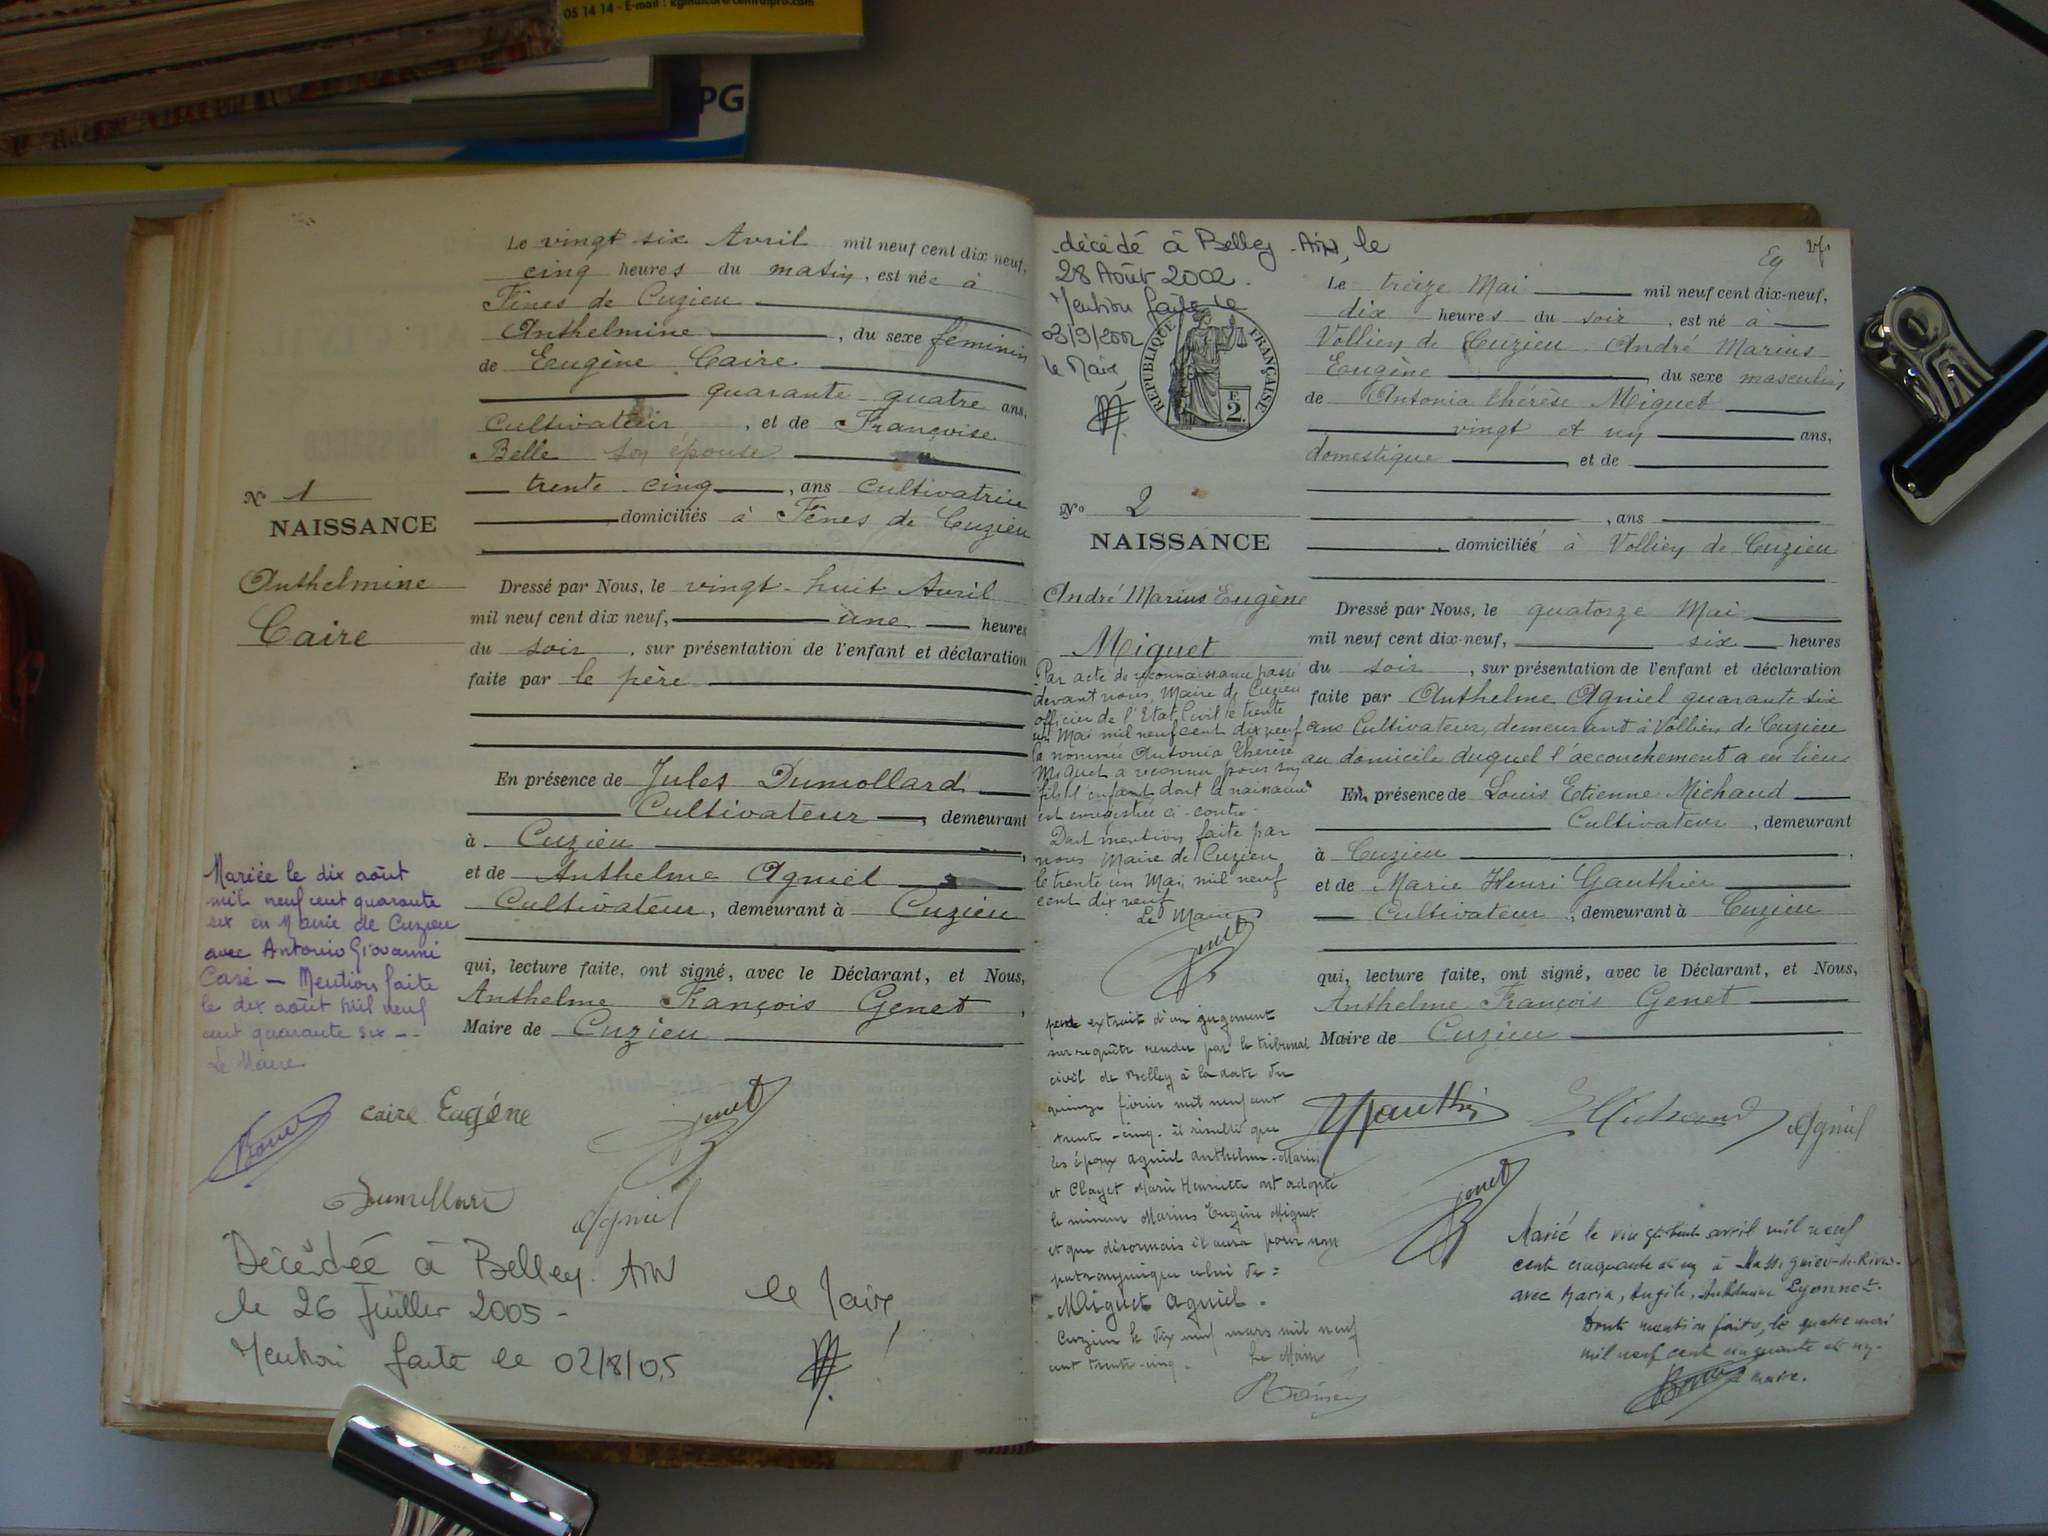 05 14 14 - E-mail :
PG
Le vingt six Avril mil neuf cent dix-neuf,
cinq heures du matin, est née à
Fênes de Cuzieu
Anthelmine, du sexe féminin
de Eugène Caire
quarante quatre ans,
Cultivateur, et de Françoise
Belle son épouse
trente cinq, ans cultivatrice
domiciliés à Fênes de Cuzieu
No 1
NAISSANCE
Anthelmine
Caire
Dressé par Nous, le vingt-huit Avril
mil neuf cent dix neuf, une heures
du soir, sur présentation de l'enfant et déclaration
faite par le père
En présence de Jules Dumollard
Cultivateur, demeurant
à Cuzieu,
et de Anthelme Agniel
Cultivateur, demeurant à Cuzieu
qui, lecture faite, ont signé, avec le Déclarant, et Nous,
Anthelme François Genet,
Maire de Cuzieu
Mariée le dix août
mil neuf cent quarante
six en Mairie de Cuzieu
avec Antonio Giovanni
Casé — Mention faite
le dix août mil neuf
cent quarante six --
Le Maire
Caire Eugène
Genet
Dumollard
Agniel
Décédée à Belley. Ain
le 26 Juillet 2005 -
Mention faite le 02/8/05
le Maire,
décédé à Belley - Ain, le
28 Août 2002.
Mention faite le
03/9/2002
le Maire,
RÉPUBLIQUE FRANÇAISE
F.
2
Le treize Mai mil neuf cent dix-neuf,
dix heures du soir, est né à
Vollien de Cuzieu André Marius
Eugène, du sexe masculin
de Antonia Thérèse Miguet
vingt et un ans,
domestique, et de
, ans
domiciliés à Vollien de Cuzieu
No 2
NAISSANCE
André Marius Eugène
Miguet
Par acte de reconnaissance passé
devant nous, Maire de Cuzieu
officier de l'Etat Civil le trente
un Mai mil neuf cent dix neuf
la nommée Antonia Thérèse
Miguet a reconnu pour son
fils l'enfant dont la naissance
est enregistrée ci-contre
Dont mention faite par
nous Maire de Cuzieu
le trente un Mai mil neuf
cent dix neuf
Le Maire
Genet
extrait d'un jugement
sur requête rendu par le tribunal
civil de Belley à la date du
quinze février mil neuf cent
trente-cinq. il résulte que
les époux Agniel Anthelme-Marie
et Clayet Marie Henriette ont adopté
le mineur Marius Eugène Miguet
et que désormais il aura pour nom
patronymique celui de :
Miguet Agniel.
Cuzieu le dix neuf mars mil neuf
cent trente-cinq.
Le Maire
Dressé par Nous, le quatorze Mai
mil neuf cent dix-neuf, six heures
du soir, sur présentation de l'enfant et déclaration
faite par Anthelme Agniel quarante six
ans Cultivateur, demeurant à Vollien de Cuzieu
au domicile duquel l'accouchement a eu lieu
En présence de Louis Etienne Michaud
Cultivateur, demeurant
à Cuzieu,
et de Marie Henri Gauthier
Cultivateur, demeurant à Cuzieu
qui, lecture faite, ont signé, avec le Déclarant, et Nous,
Anthelme François Genet
Maire de Cuzieu
Agniel
Genet
Marié le vingt huit avril mil neuf
cent cinquante et un à Massignieu-de-Rives
avec Maria, Angèle, Anthelmine Lyonnet.
Dont mention faite, le quatre mai
mil neuf cent cinquante et un.
Le maire.